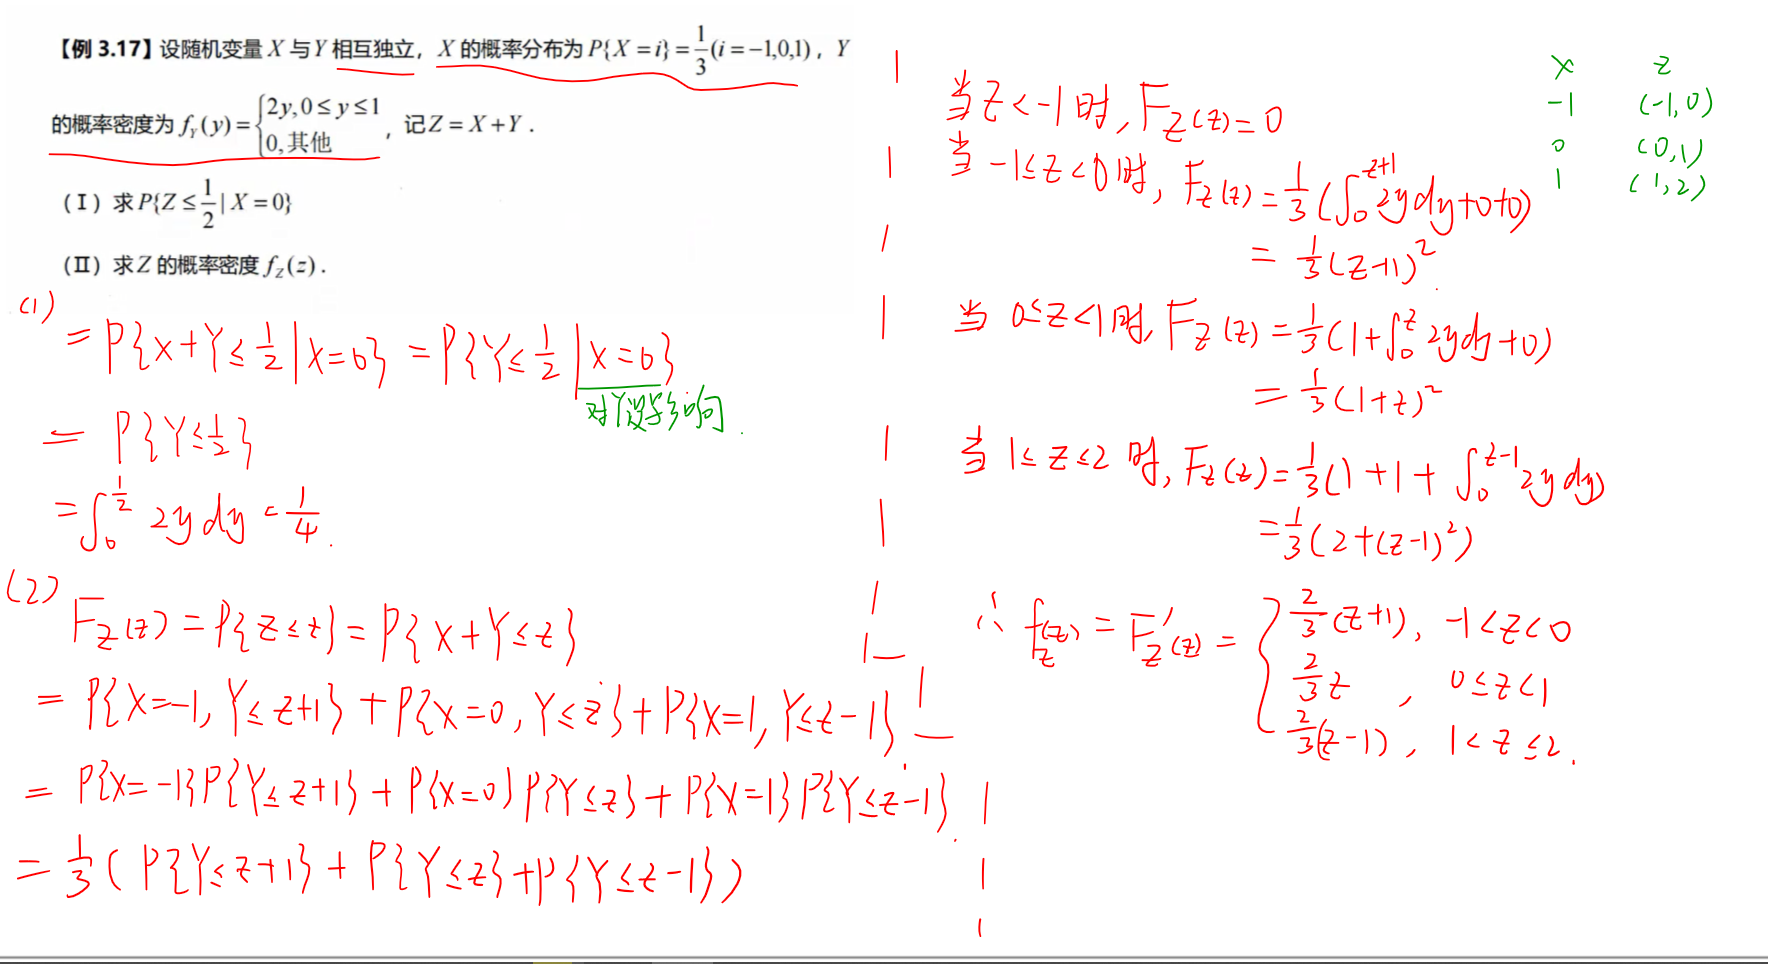 【例 3.17】设随机变量 X 与 Y 相互独立，X 的概率分布为 P{X = i} = 1/3 (i = −1,0,1)，Y
的概率密度为 f_Y(y) = {2y, 0 ≤ y ≤ 1; 0, 其他，记 Z = X + Y .
（I）求 P{Z ≤ 1/2 | X = 0}
（II）求 Z 的概率密度 f_Z(z) .
(1)
= P{X+Y≤1/2 | X=0} = P{Y≤1/2 | X=0}
对Y没影响
= P{Y≤1/2}
= ∫_0^{1/2} 2y dy = 1/4.
(2)
F_Z(z) = P{Z≤z} = P{X+Y≤z}
= P{X=-1, Y≤z+1} + P{X=0, Y≤z} + P{X=1, Y≤z-1}
= P{X=-1}P{Y≤z+1} + P{X=0}P{Y≤z} + P{X=1}P{Y≤z-1}.
= 1/3 (P{Y≤z+1} + P{Y≤z} + P{Y≤z-1})
当 z<-1 时, F_Z(z) = 0
当 -1≤z<0 时, F_Z(z) = 1/3 (∫_0^{z+1} 2y dy+0+0)
= 1/3 (z+1)^2.
当 0≤z<1 时, F_Z(z) = 1/3 (1+∫_0^z 2y dy+0)
= 1/3 (1+z)^2
当 1≤z≤2 时, F_Z(z) = 1/3 (1+1+∫_0^{z-1} 2y dy)
= 1/3 (2+(z-1)^2)
∴ f_Z(z) = F_Z'(z) = { 2/3 (z+1), -1<z<0
2/3 z, 0≤z<1
2/3 (z-1), 1<z≤2.
X Z
-1 (-1,0)
0 (0,1)
1 (1,2)